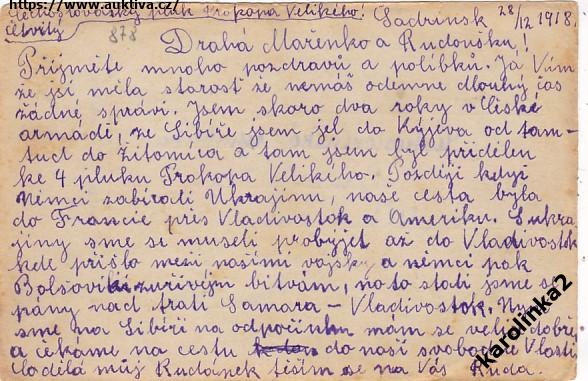 https://www.auktiva.cz/
Českoslovánský pluk Prokopa Velikého.
čtvrtý 878 Šadrinsk 28/12 1918
Drahá Mařenko a Rudoušku!
Přijmete mnoho pozdravů a polibků. Já Vím
že jsi měla starost že nemáš odemne dlouhý čas
žádné správi. Jsem skoro dva roky v České
armádi, ze Sibiře jsem jel do Kyjeva od tam-
tud do Žitomíra a tam jsem byl přidělen
ke 4 pluku Prokopa Velikého. Později když
Němci zabírali Ukrajinu, naše cesta byla
do Francie přes Vladivostok a Ameriku. S ukra
jiny sme se museli probýjet až do Vladivostok
kde přišlo mezi našimi vojsky a němci pak
Bolševiki zuřivým bitvám, na to stali jsme se
pány nad trati Samara – Vladivostok. Nyní
sme na Sibiři na odpočinku mám se velice dobře
a čekáme na cestu do naší svobodné Vlasti
můj Rudánek těším se na Vás Ruda.
karolinka2